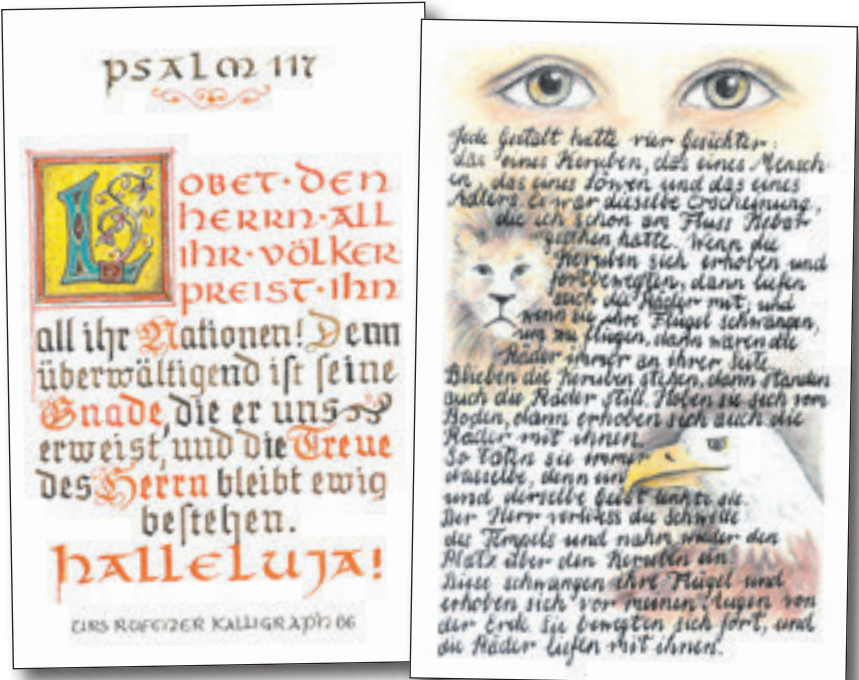 PSALM 117
LOBET·DEN
HERRN·ALL
IHR·VÖLKER
PREIST·IHN
all ihr Nationen! Denn
überwältigend ist seine
Gnade, die er uns
erweist, und die Treue
des Herrn bleibt ewig
bestehen.
HALLELUJA!
URS ROFENZER KALLIGRAPH 06
Jede Gestalt hatte vier Gesichter:
das eines Keruben, das eines Mensch-
en, das eines Löwen und das eines
Adlers. Es war dieselbe Erscheinung,
die ich schon am Fluss Kebar
gesehen hatte. Wenn die
Keruben sich erhoben und
fortbewegten, dann liefen
auch die Räder mit; und
wenn sie ihre Flügel schwangen,
um zu fliegen, dann waren die
Räder immer an ihrer Seite.
Blieben die Keruben stehen, dann standen
auch die Räder still. Hoben sie sich vom
Boden, dann erhoben sich auch die
Räder mit ihnen.
So taten sie immer
dasselbe, denn ein
und derselbe Geist lenkte sie.
Der Herr verliess die Schwelle
des Tempels und nahm wieder den
Platz über den Keruben ein.
Diese schwangen ihre Flügel und
erhoben sich vor meinen Augen von
der Erde. Sie bewegten sich fort, und
die Räder liefen mit ihnen.